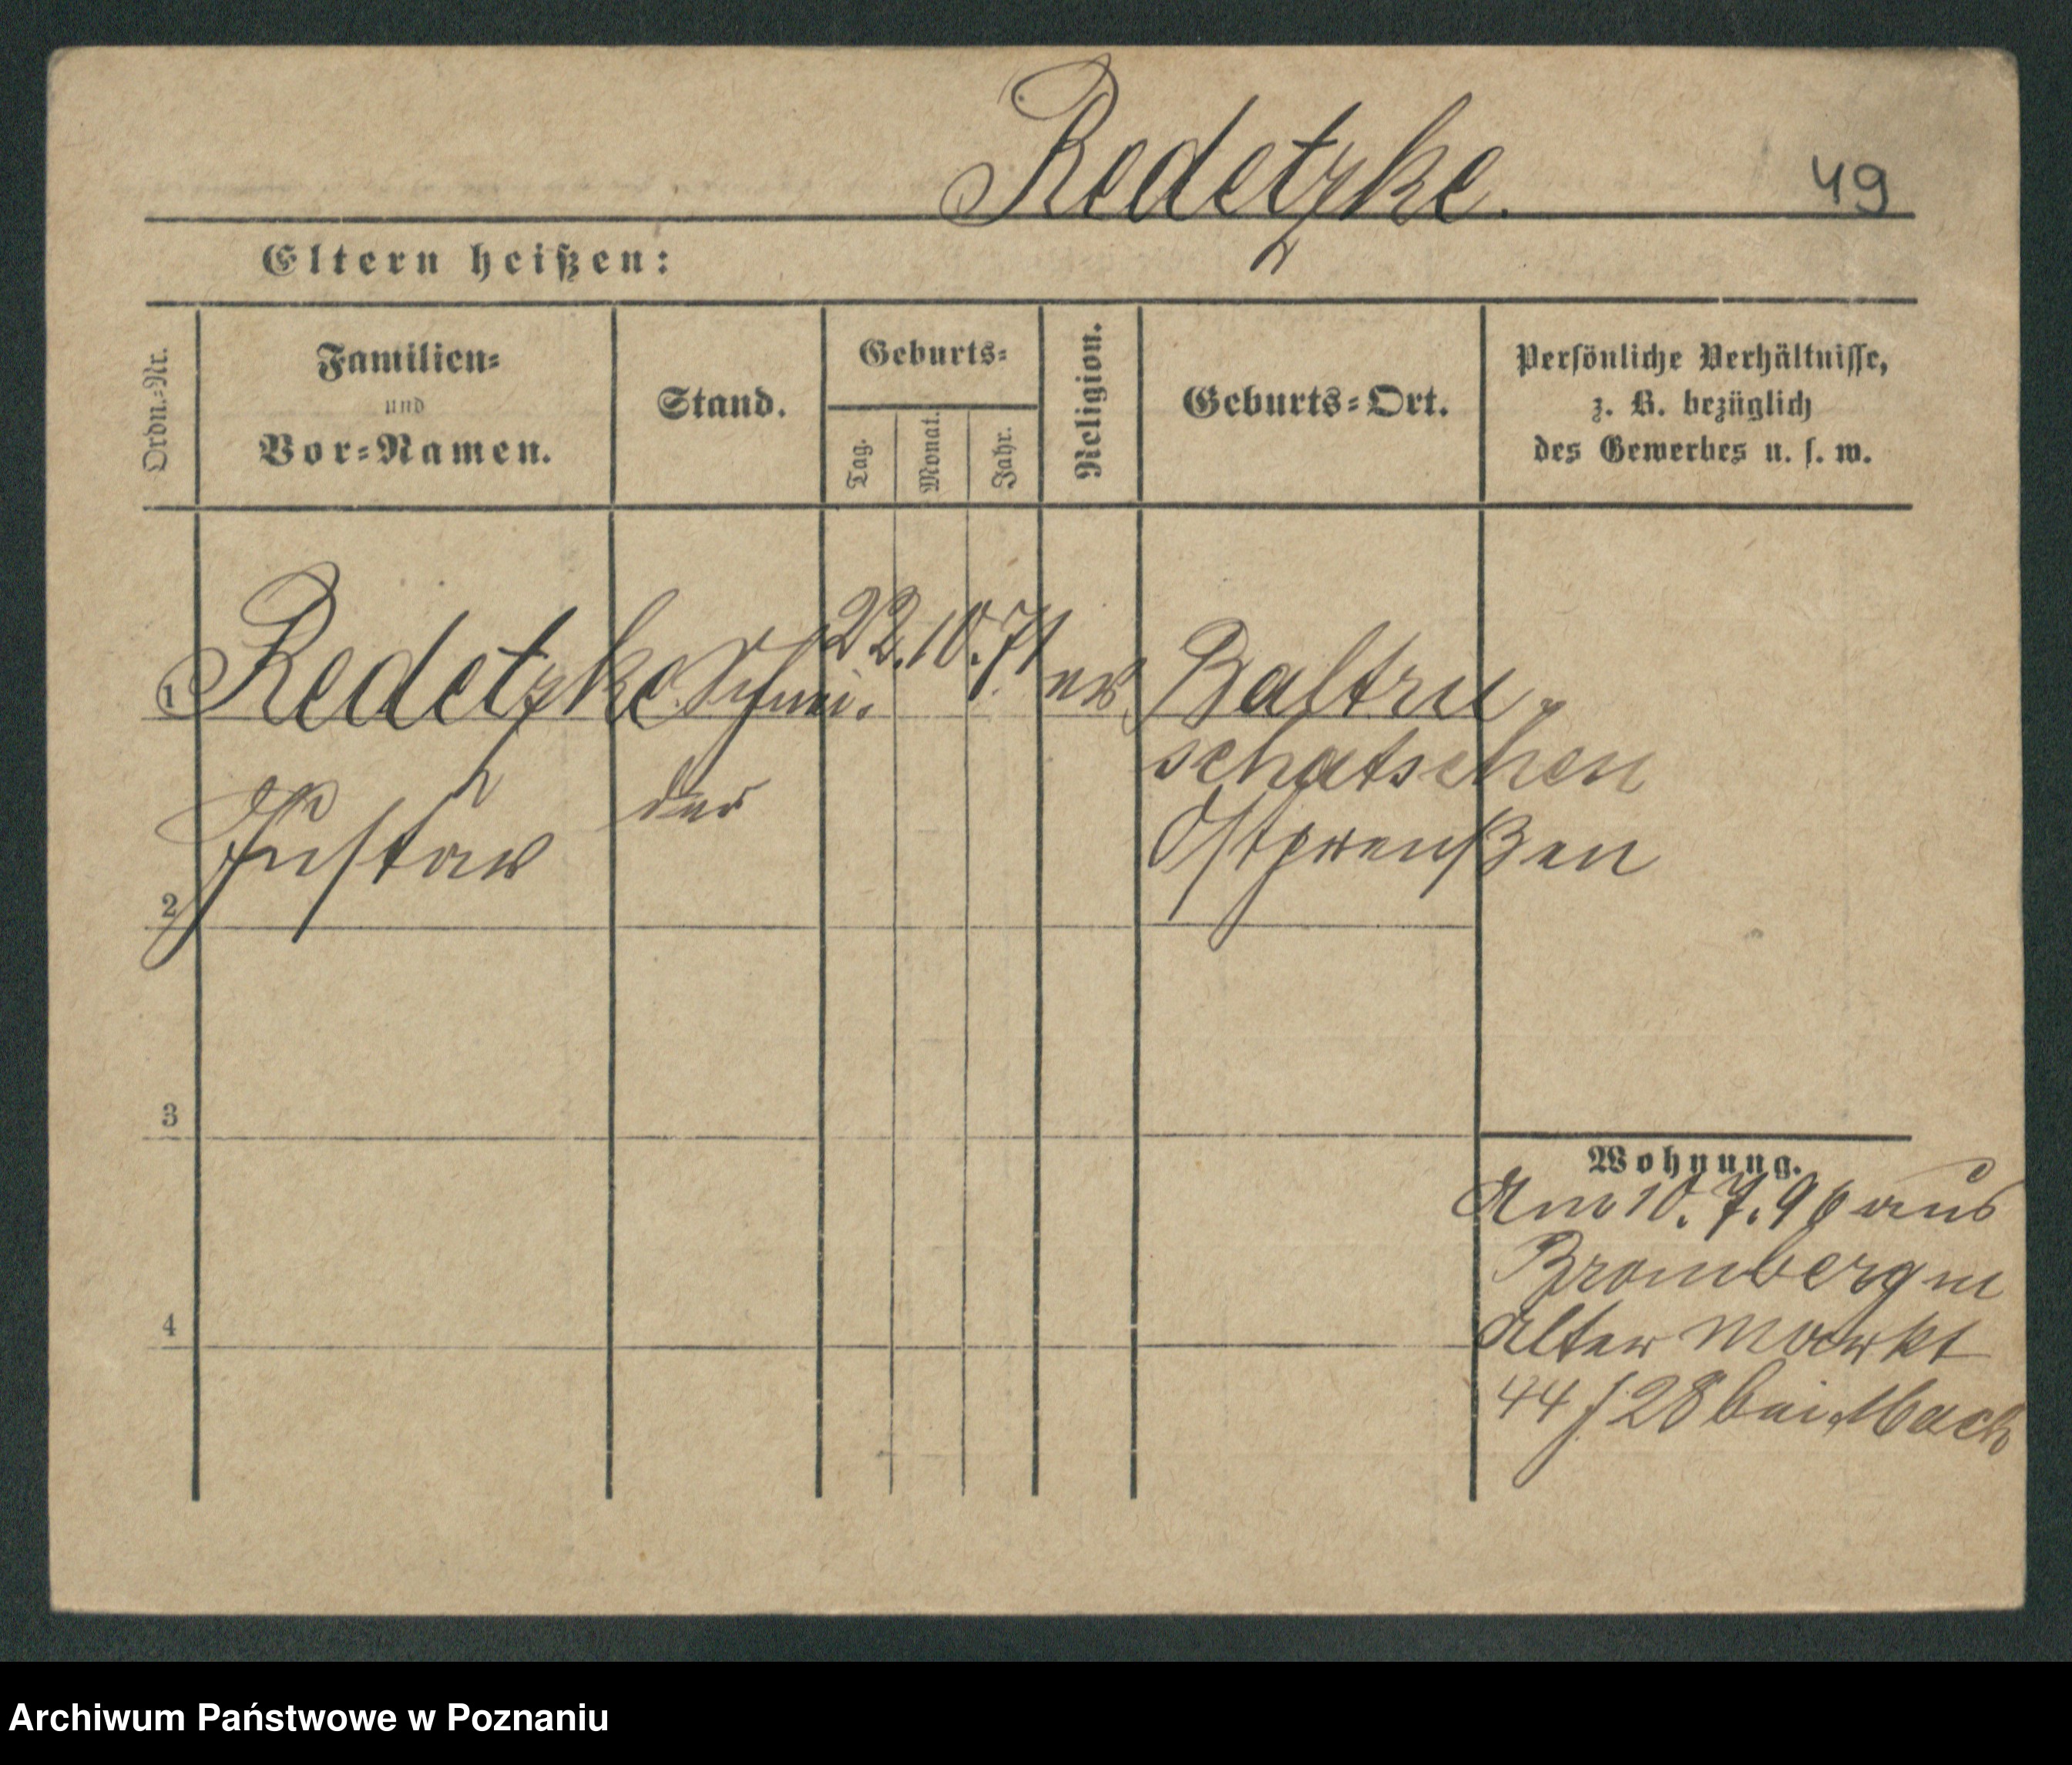 Redetzke.
49
Eltern heißen:
Ordn.-Nr.
Familien-
und
Vor-Namen.
Stand.
Geburts-
Tag.
Monat.
Jahr.
Religion.
Geburts-Ort.
Persönliche Verhältnisse,
z. B. bezüglich
des Gewerbes u. s. w.
1 Redetzke Schnei- 22. 10. 71 ev Baltru-
schatschen
der
Gustav
Ostpreußen
2
3
Wohnung.
Am 10. 7. 96 aus
Bromberg n
4
Alter Markt
44/28 bei Mach
Archiwum Państwowe w Poznaniu